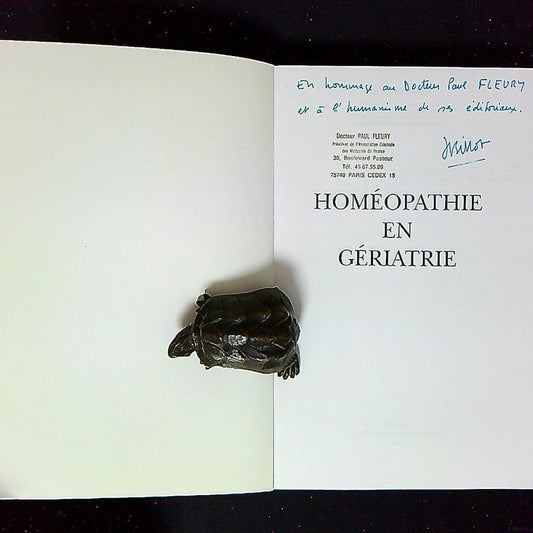 En hommage au Docteur Paul FLEURY
et à l'humanisme de ses éditoriaux.
Docteur PAUL FLEURY
Président de l'Association Générale
des Médecins de France
30, Boulevard Pasteur
75740 PARIS CEDEX 15
HOMÉOPATHIE
EN
GÉRIATRIE